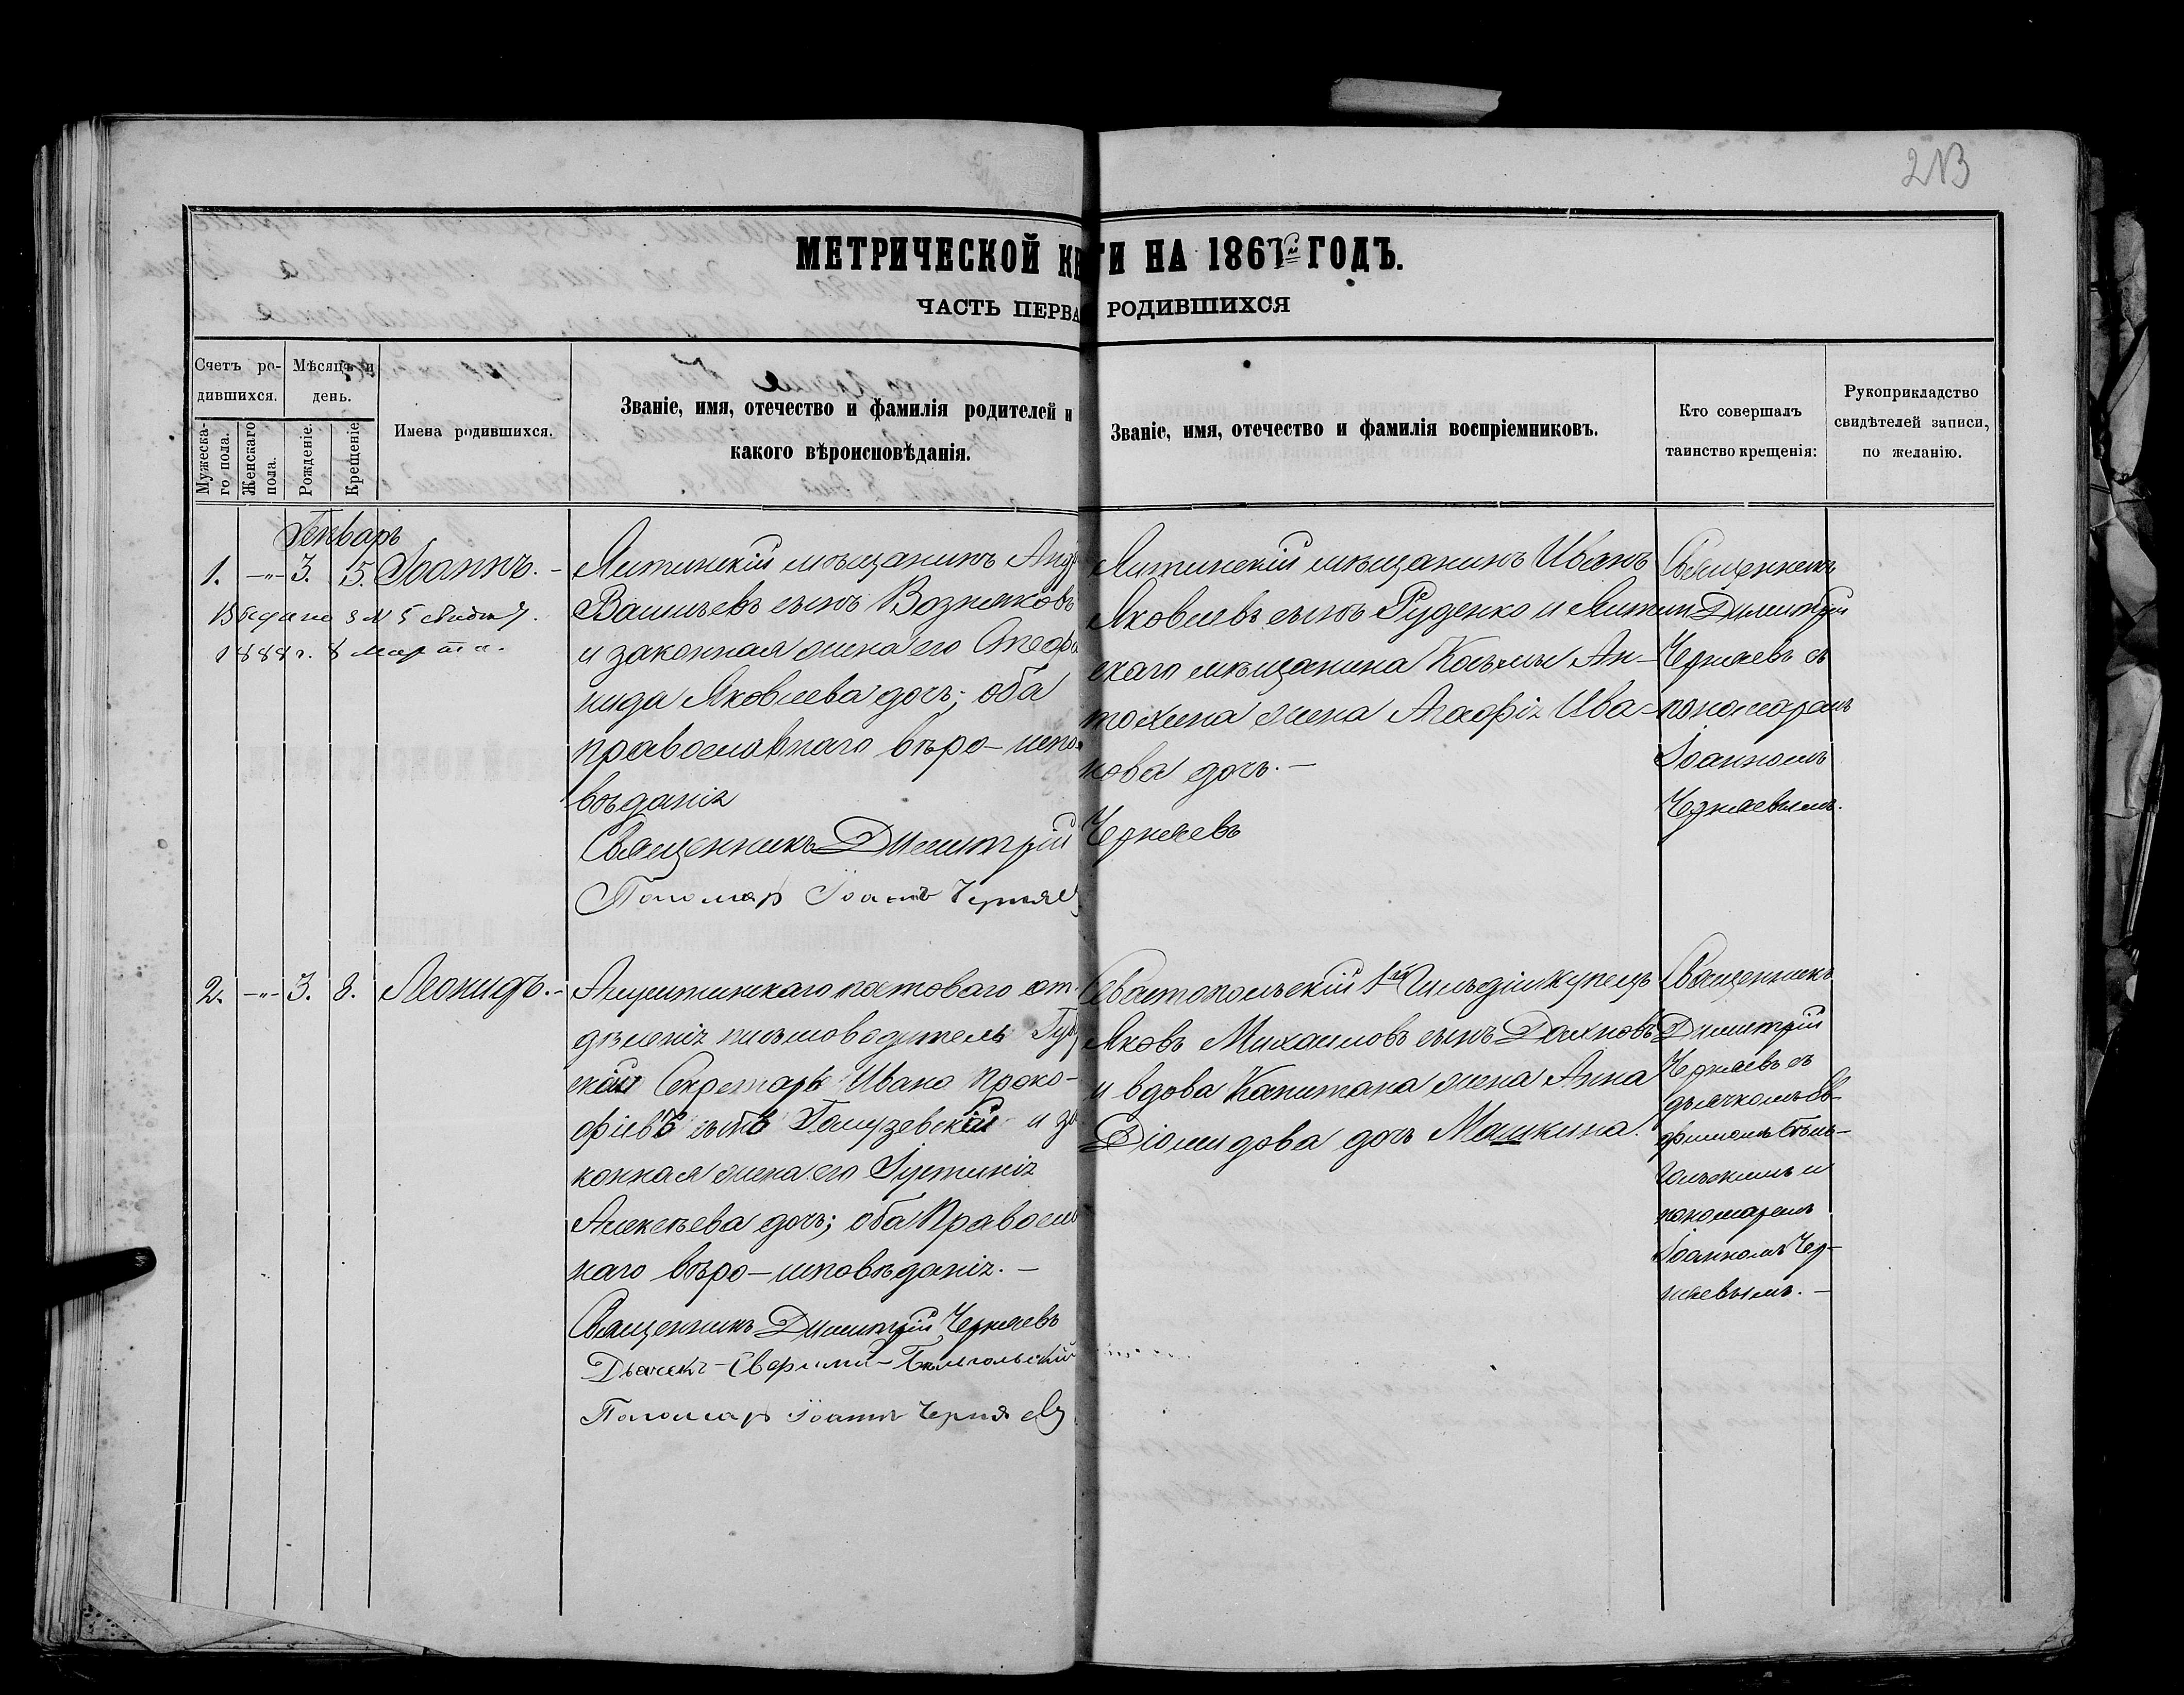 213
МЕТРИЧЕСКОЙ КНИГИ НА 1867й ГОДЪ.
ЧАСТЬ ПЕРВАЯ РОДИВШИХСЯ
Счетъ ро-
дившихся.
Мѣсяцъ и
день.
Мужеска-
го пола.
Женскаго
пола.
Рожденіе.
Крещеніе.
Имена родившихся.
Званіе, имя, отечество и фамилія родителей и
какого вѣроисповѣданія.
Званіе, имя, отечество и фамилія воспріемниковъ.
Кто совершалъ
таинство крещенія:
Рукоприкладство
свидѣтелей записи,
по желанію.
Генварь
1. -"- 3. 5. Іоаннъ. -
1888 г. 8 марта.
Ялтинскій мѣщанинъ
Васильевъ сынъ Возняковъ
и законная жена его Стефа
нида Яковлева дочь; оба
православнаго вѣро-испо
вѣданія
Священникъ Димитрій Черняевъ
Пономар Іоаннъ Черняев
Ялтинскій мѣщанинъ Иванъ
Яковлевъ сынъ Руденко и Ялтин
скаго мѣщанина Косьмы Ан-
тохина жена Агафія Ива-
нова дочь. -
Священникъ
Димитрій
Черняевъ съ
пономаремъ
Іоанномъ
Черняевымъ.
2. -"- 3. 8. Леонидъ. -
Алуштинскаго почтоваго от
дѣленія письмоводитель Губ
скій Секретарь Иванъ Проко-
фіевъ сынъ и за
конная жена его Іустинія
Алексѣева дочь; оба Правосла
наго вѣро-исповѣданія. -
Священникъ Димитрій Черняевъ
Дьячекъ Евфимій Бѣльгольскій
Пономар Іоаннъ Черняев
Севастопольскій 1й Гильдіи купецъ
Яковъ Михаиловъ сынъ Дахновъ
и вдова Капитана жена Анна
Діомидова дочь Машкина.
Священникъ
Димитрій
Черняевъ съ
дьячкомъ Ев-
фиміемъ Бѣль-
гольскимъ и
пономаремъ
Іоанномъ Чер-
няевымъ. -